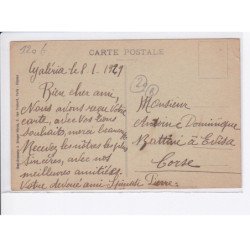 120 f
CARTE POSTALE
20
Galéria le 8.1.1921
Bien cher ami,
Nous avons reçu votre
carte, avec vos bons
souhaits, merci beaucoup
Recevez les nôtres les plus
Sincères, avec nos
meilleures amitiés.
Votre dévoué ami Spinosi Pierre
Monsieur
Antoine Dominique
à Evisa
Corse